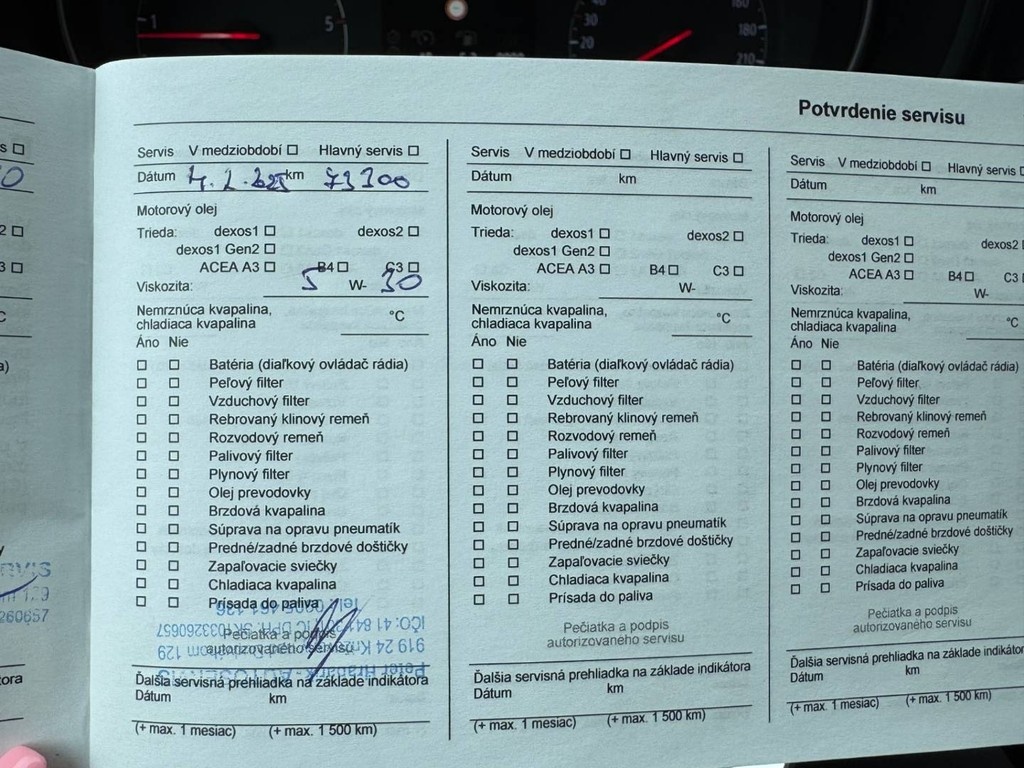 1
5
30
20
160
180
210
Potvrdenie servisu
Servis V medziobdobí ☐ Hlavný servis ☐
Dátum km 73300
Motorový olej
Trieda: dexos1 ☐ dexos2 ☐
dexos1 Gen2 ☐
ACEA A3 ☐ B4 ☐ C3 ☐
Viskozita: 5 W- 30
Nemrznúca kvapalina,
chladiaca kvapalina °C
Áno Nie
☐ ☐ Batéria (diaľkový ovládač rádia)
☐ ☐ Peľový filter
☐ ☐ Vzduchový filter
☐ ☐ Rebrovaný klinový remeň
☐ ☐ Rozvodový remeň
☐ ☐ Palivový filter
☐ ☐ Plynový filter
☐ ☐ Olej prevodovky
☐ ☐ Brzdová kvapalina
☐ ☐ Súprava na opravu pneumatík
☐ ☐ Predné/zadné brzdové doštičky
☐ ☐ Zapaľovacie sviečky
☐ ☐ Chladiaca kvapalina
☐ ☐ Prísada do paliva
Pečiatka a podpis
autorizovaného servisu
Peter
919 24 129
IČO: 41 DPH: SK1033260657
Ďalšia servisná prehliadka na základe indikátora
Dátum km
(+ max. 1 mesiac) (+ max. 1 500 km)
Servis V medziobdobí ☐ Hlavný servis ☐
Dátum km
Motorový olej
Trieda: dexos1 ☐ dexos2 ☐
dexos1 Gen2 ☐
ACEA A3 ☐ B4 ☐ C3 ☐
Viskozita: W-
Nemrznúca kvapalina,
chladiaca kvapalina °C
Áno Nie
☐ ☐ Batéria (diaľkový ovládač rádia)
☐ ☐ Peľový filter
☐ ☐ Vzduchový filter
☐ ☐ Rebrovaný klinový remeň
☐ ☐ Rozvodový remeň
☐ ☐ Palivový filter
☐ ☐ Plynový filter
☐ ☐ Olej prevodovky
☐ ☐ Brzdová kvapalina
☐ ☐ Súprava na opravu pneumatík
☐ ☐ Predné/zadné brzdové doštičky
☐ ☐ Zapaľovacie sviečky
☐ ☐ Chladiaca kvapalina
☐ ☐ Prísada do paliva
Pečiatka a podpis
autorizovaného servisu
Ďalšia servisná prehliadka na základe indikátora
Dátum km
(+ max. 1 mesiac) (+ max. 1 500 km)
Servis V medziobdobí ☐ Hlavný servis ☐
Dátum km
Motorový olej
Trieda: dexos1 ☐ dexos2 ☐
dexos1 Gen2 ☐
ACEA A3 ☐ B4 ☐ C3
Viskozita: W-
Nemrznúca kvapalina,
chladiaca kvapalina °C
Áno Nie
☐ ☐ Batéria (diaľkový ovládač rádia)
☐ ☐ Peľový filter
☐ ☐ Vzduchový filter
☐ ☐ Rebrovaný klinový remeň
☐ ☐ Rozvodový remeň
☐ ☐ Palivový filter
☐ ☐ Plynový filter
☐ ☐ Olej prevodovky
☐ ☐ Brzdová kvapalina
☐ ☐ Súprava na opravu pneumatík
☐ ☐ Predné/zadné brzdové doštičky
☐ ☐ Zapaľovacie sviečky
☐ ☐ Chladiaca kvapalina
☐ ☐ Prísada do paliva
Pečiatka a podpis
autorizovaného servisu
Ďalšia servisná prehliadka na základe indikátor
Dátum km
(+ max. 1 mesiac) (+ max. 1 500 km)